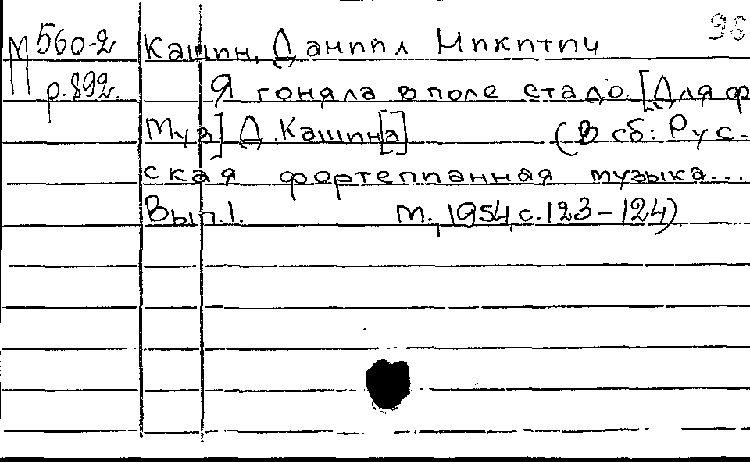 96
М 560-2 Кашин, Даниил Никитич
р.892. Я гоняла в поле стадо. [Для ф
Муз] Д. Кашин[а] (В сб: Рус-
ская фортепианная музыка...
Вып.1. М., 1954, с.123-124)